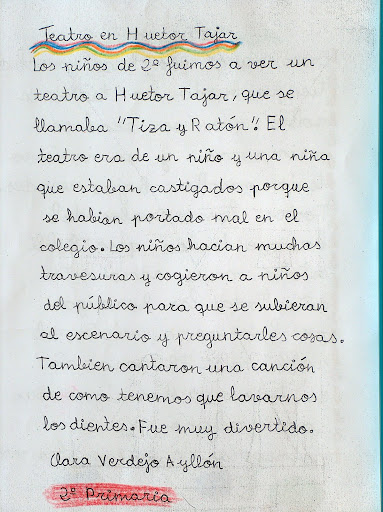 Teatro en Huetor Tajar
Los niños de 2º fuimos a ver un
teatro a Huetor Tajar, que se
llamaba "Tiza y Ratón". El
teatro era de un niño y una niña
que estaban castigados porque
se habian portado mal en el
colegio. Los niños hacian muchas
travesuras y cogieron a niños
del público para que se subieran
al escenario y preguntarles cosas.
Tambien cantaron una canción
de como tenemos que lavarnos
los dientes. Fue muy divertido.
Clara Verdejo Ayllón
2º Primaria